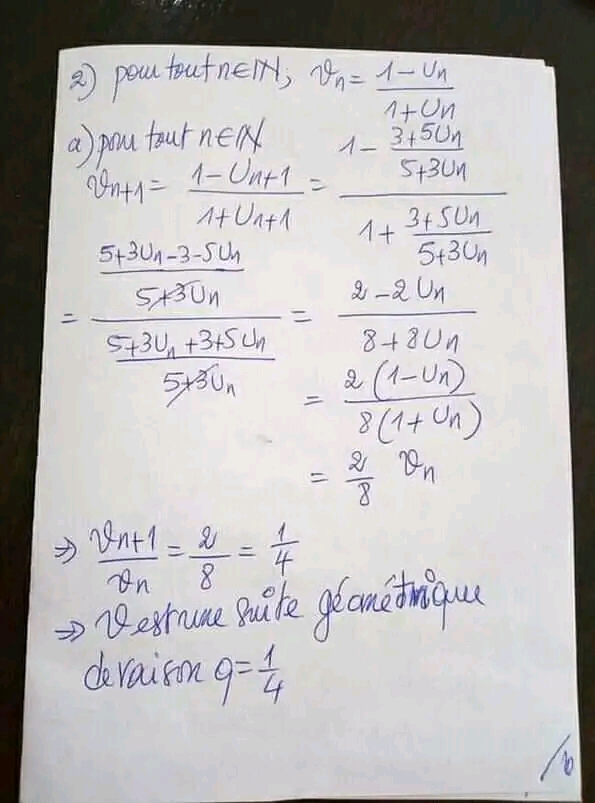 2) pour tout n∈ℕ; vn = (1-Un)/(1+Un)
a) pour tout n∈ℕ
vn+1 = (1-Un+1)/(1+Un+1) = (1 - (3+5Un)/(5+3Un))/(1 + (3+5Un)/(5+3Un))
= ((5+3Un-3-5Un)/(5+3Un))/((5+3Un+3+5Un)/(5+3Un)) = (2-2Un)/(8+8Un)
= 2(1-Un)/8(1+Un)
= 2/8 vn
⇒ vn+1/vn = 2/8 = 1/4
⇒ V est une suite géométrique
de raison q = 1/4